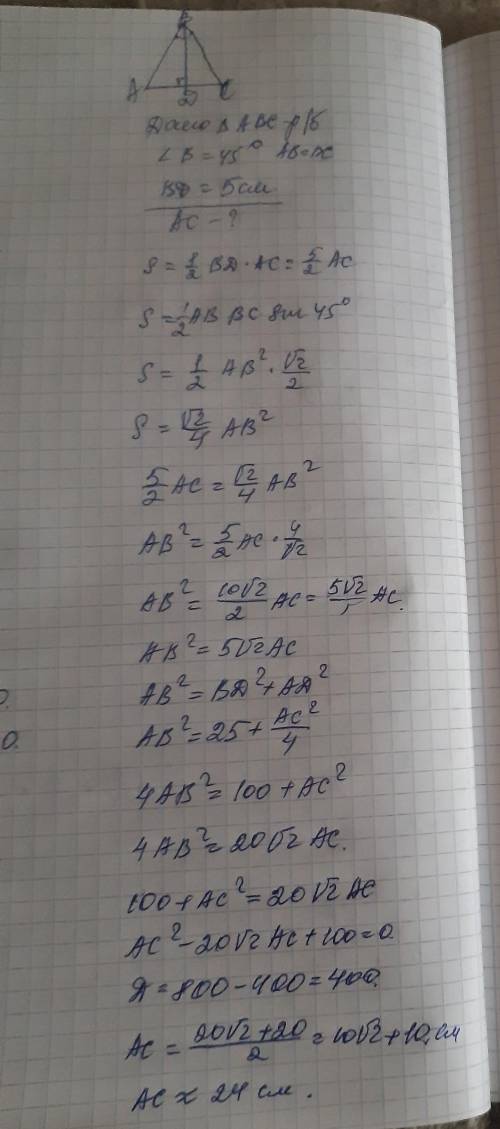 B
A D C
Дано △ ABC - р/б
∠B = 45° AB=BC
BD = 5 см
AC - ?
S = 1/2 BD · AC = 5/2 AC
S = 1/2 AB BC sin 45°
S = 1/2 AB² · √2/2
S = √2/4 AB²
5/2 AC = √2/4 AB²
AB² = 5/2 AC · 4/√2
AB² = 10√2/2 AC = 5√2/1 AC.
AB² = 5√2 AC
AB² = BD² + AD²
AB² = 25 + AC²/4
4AB² = 100 + AC²
4AB² = 20√2 AC.
100 + AC² = 20√2 AC
AC² - 20√2 AC + 100 = 0
D = 800 - 400 = 400.
AC = (20√2 + 20)/2 = 10√2 + 10, см
AC ≈ 24 см.
0.